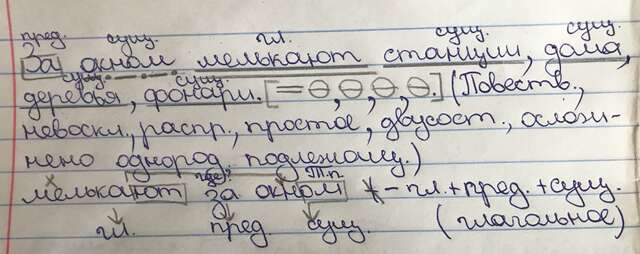 пред. сущ. гл. сущ. сущ.
За окном мелькают станции, дома,
сущ. сущ.
деревья, фонари. [= ⊖, ⊖, ⊖, ⊖.] (Повеств.,
невоскл., распр., простое, двусост., ослож-
нено однород. подлежащ.)
где? Т.п.
мелькают за окном – гл.+пред.+сущ.
гл. пред. сущ. (глагольное)